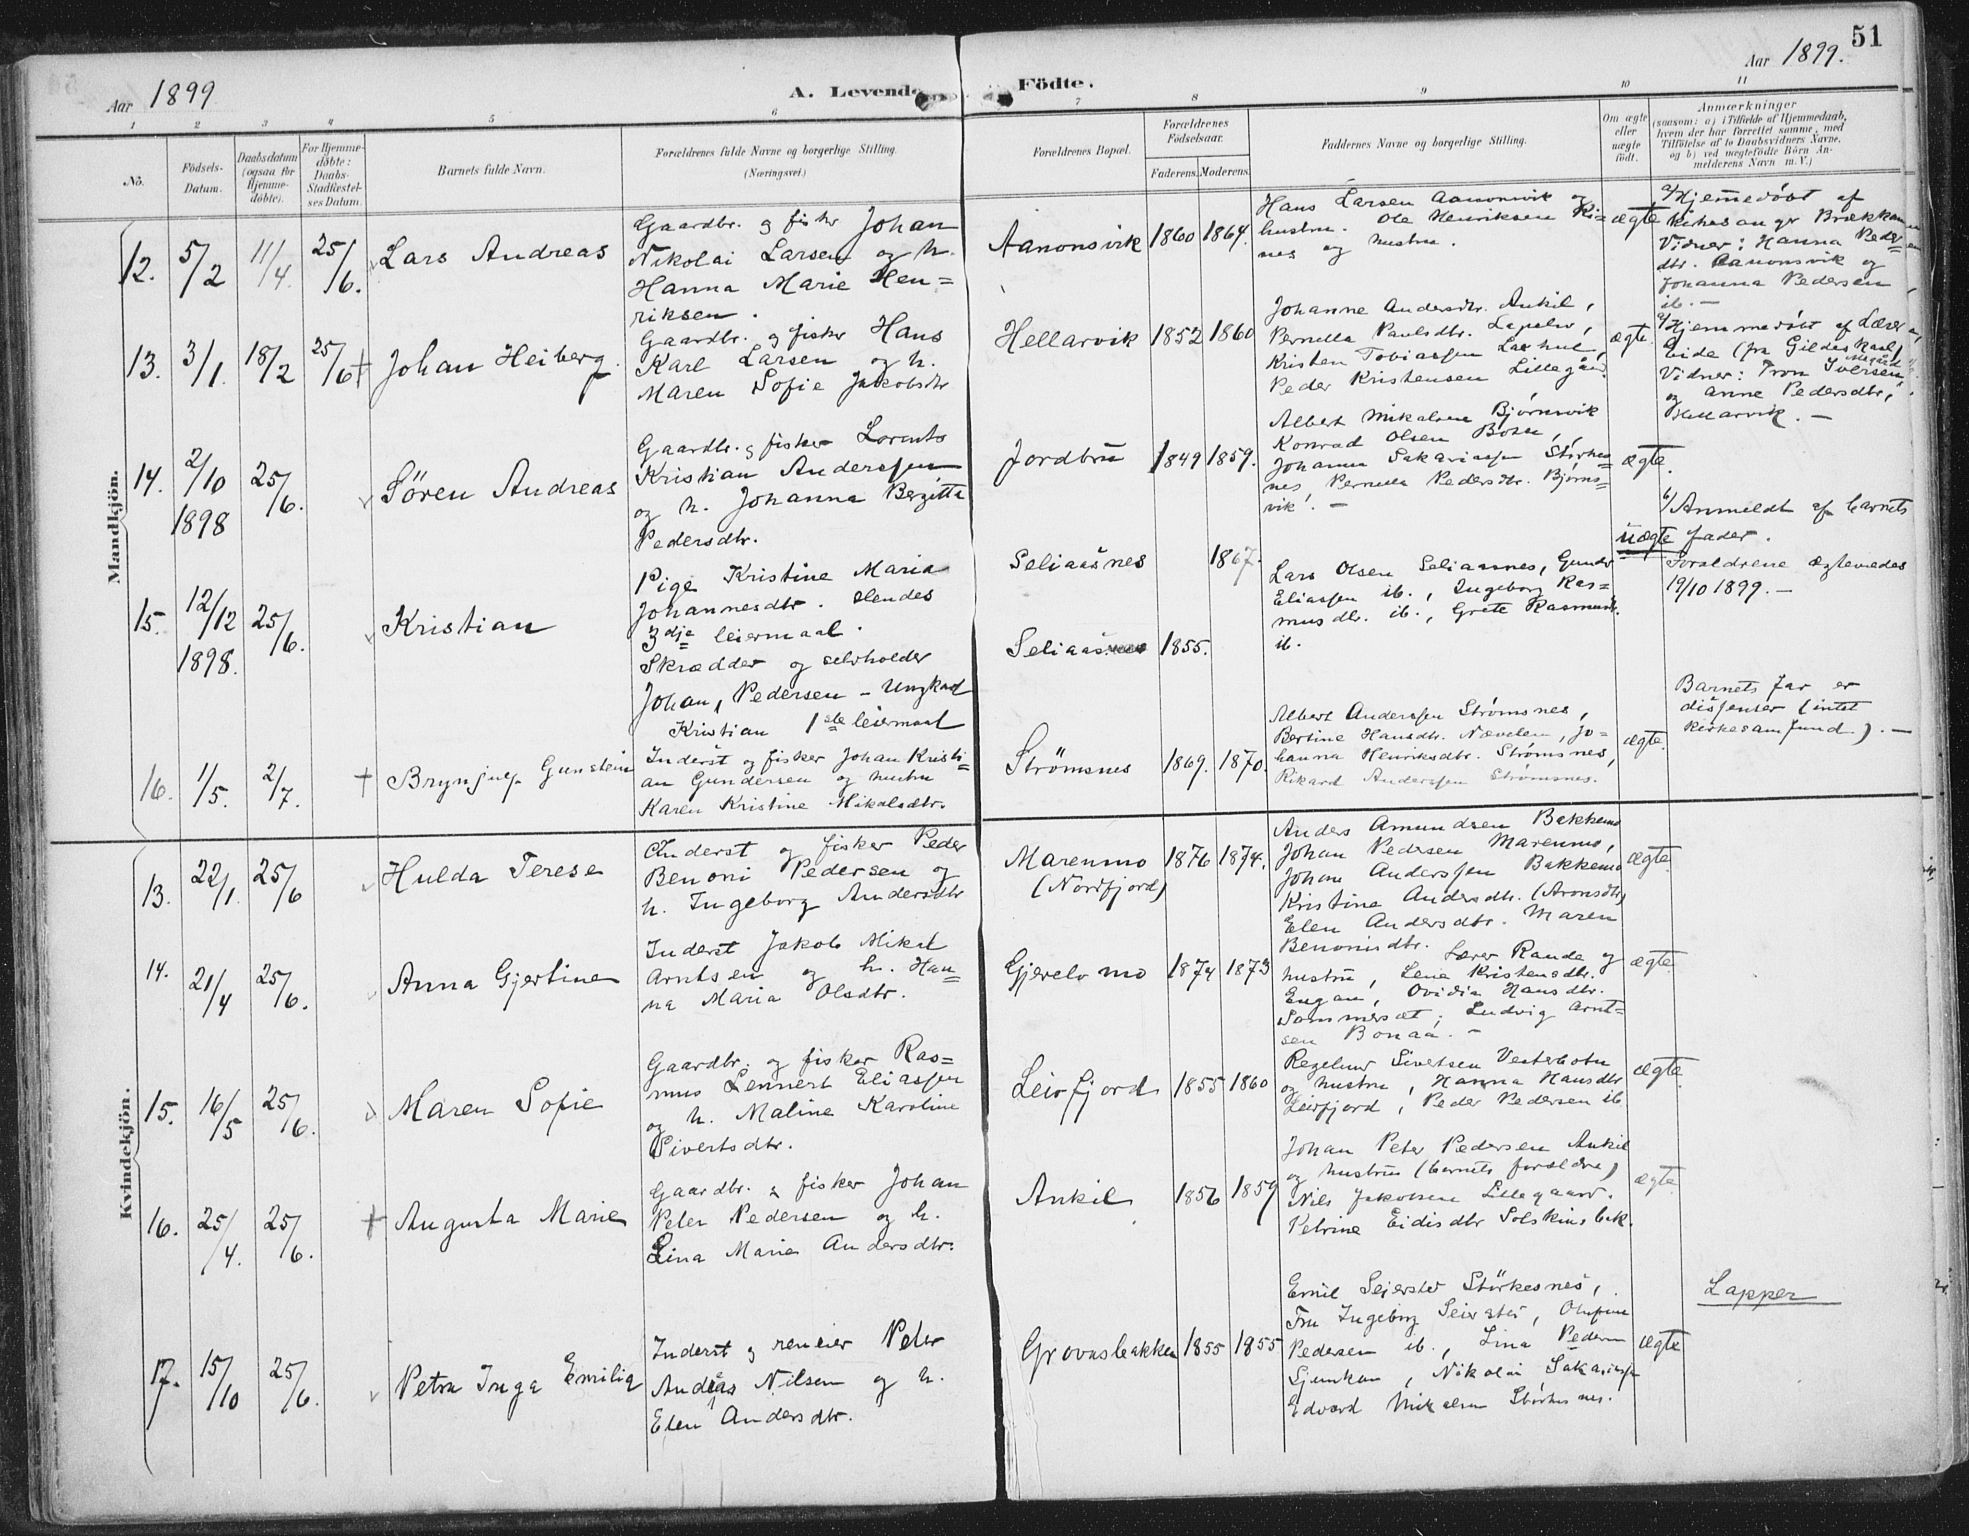 51
Aar 1899
A. Levende Födte.
Aar 1899.
1 2 3 4 5 6 7 8 9 10 11
No.
Födsels-Datum.
Daabsdatum (ogsaa for Hjemmedöbte).
For Hjemmedöbte: Daabs-Stadfæstelses Datum.
Barnets fulde Navn.
Forældrenes fulde Navne og borgerlige Stilling.
(Næringsvei.)
Forældrenes Bopæl.
Forældrenes Födselsaar.
Faderens. Moderens.
Faddernes Navne og borgerlige Stilling.
Om ægte eller uægte födt.
Anmærkninger
(saasom: a) i Tilfælde af Hjemmedaab,
hvem der har forrettet samme, med
Tilföielse af to Daabsvidners Navne,
og b) ved uægtefödte Börn Anmelderens Navn m. V.)
Mandkjön.
12. 5/2 11/4. 25/6. Lars Andreas
Gaardbr. og fisker Johan
Nikolai Larsen og h.
Hanna Marie Hen=
riksen.
Aanonsvik 1860 1864.
Hans Larsen Aanonsvik og
hustru. Ole Henriksen Ki=
nes og hustru.
ægte
a/ Hjemmedöbt af
kirkesanger Brækkan
Vidner: Hanna Peder=
dtr. Aanonsvik og
Johanna Pedersen
ib. —
13. 3/1. 18/2 25/6 † Johan Heiberg
Gaardbr. og fisker Hans
Karl Larsen og h.
Maren Sofie Jakobsdtr
Hellarvik 1852 1860
Johanne Andersdtr. Ankil,
Pernella Paulsdtr.
Kristen Tobiassen
Peder Kristensen Lillegård.
ægte.
a/ Hjemmedöbt af Læser
Eide (fra Gildeskaal)
Vidner: Tron Iversen
og Anne Pedersdtr,
Hellarvik. —
14. 2/10 1898 25/6. Sören Andreas
Gaardbr. og fisker Lorents
Kristian Anderssen
og h. Johanna Bergitta
Pedersdtr.
Jordbru 1849 1859.
Albert Mikalsen Bjørnvik
Konrad Olsen Bosen,
Johannes Sakariassen Störkes=
nes, Pernella Pedersdtr. Bjørns=
vik. —
ægte.
15. 12/12 1898. 25/6. Kristian
Pige Kristine Maria
Johannesdtr. Hendes
3dje leiermaal.
Skrædder og selvholder
Johan Pedersen – Ungkarl
Kristian 1ste leiermaal
Seliaasnes 1867.
Seliaasnes 1855.
Lars Olsen Seliaasnes, Gunder
Eliassen ib., Ingeborg Ras=
musdtr. ib., Grete Rasmusdtr.
ib.
uægte
b/ Anmeldt af barnets
fader.
Forældrene ægteviedes
19/10 1899. —
Barnets far er
dissenter (intet
kirkesamfund). —
16. 1/5. 2/7. † Brynjulf Gunstein
Inderst og fisker Johan Kristi=
an Gundersen og hustru
Karen Kristine Mikalsdtr.
Strömsnes 1869. 1870.
Albert Anderssen Strømsnes,
Bertine Hansdtr. Nævelsn, Jo=
hanna Henriksdtr. Strømsnes,
Rikard Anderssen Strømsnes.
ægte.
Kvindekjön.
13. 22/1. 25/6 Hulda Terese
Inderst og fisker Peder
Benoni Pedersen og
h. Ingeborg Andersdtr
Marenmo 1876 1874.
(Nordfjord)
Anders Amundsen Bakkemo
Johan Pedersen Marenmo,
Johan Anderssen Bakkemo
Kristine Andersdtr. (Aronsdtr)
Elen Andersdtr. Maren
Benonisdtr.
ægte.
14. 21/4 25/6. Anna Gjertine
Inderst Jakob Mikal
Arntsen og h. Han=
na Maria Olsdtr.
Gjerelvmo 1874 1873
Lærer Rande og
hustru, Lena Kristensdtr.
Engan, Ovidia Hansdtr.
Sommerset, Ludvig Arnt=
sen Bonaa. —
ægte.
15. 16/5 25/6. Maren Sofie
Gaardbr. og fisker Ras=
mus Lennert Eliassen
og h. Maline Karoline
Sivertsdtr.
Leirfjord 1855 1860
Sivertsen Vesterbotn
og hustru, Hanna Hansdtr
Leirfjord, Peder Pedersen ib.
ægte.
16. 25/4. 25/6. † Augusta Marie
Gaardbr. og fisker Johan
Peter Pedersen og h.
Lina Marie Andersdtr.
Ankil 1856 1859
Johan Peter Pedersen Ankil
og hustru (barnets forældre)
Nils Jakobsen Lillegaard.
Petrine Eidisdtr Solskinsbak.
ægte.
17. 15/10 25/6. Petra Inga Emilia
Inderst og reneier Peter
Andreas Nilsen og h.
Elen Andersdtr.
Grovasbakken 1855 1855
Emil Seiersted Störkesnes,
Fru Ingeborg Seiersted,
Pedersen ib., Lina
Nikolai Sakariassen
Edvard Mikalsen Störkesnes.
ægte
Lapper